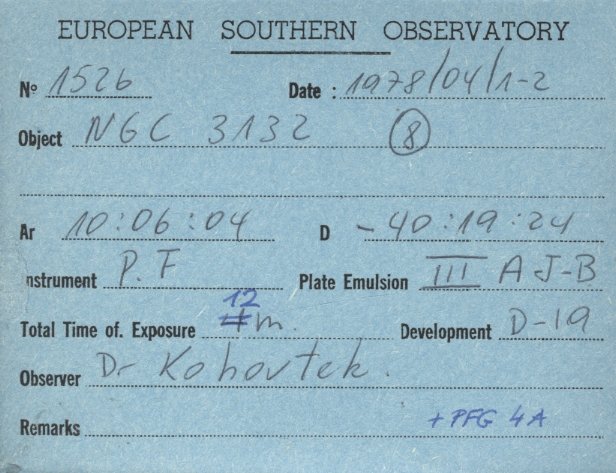 EUROPEAN SOUTHERN OBSERVATORY
Nº 1526 Date : 1978/04/1-2
Object NGC 3132 8
Ar 10:06:04 D -40:19:24
nstrument P.F Plate Emulsion III A J-B
12
Total Time of. Exposure m. Development D-19
Observer Dr Kohoutek.
Remarks + PFG 4A